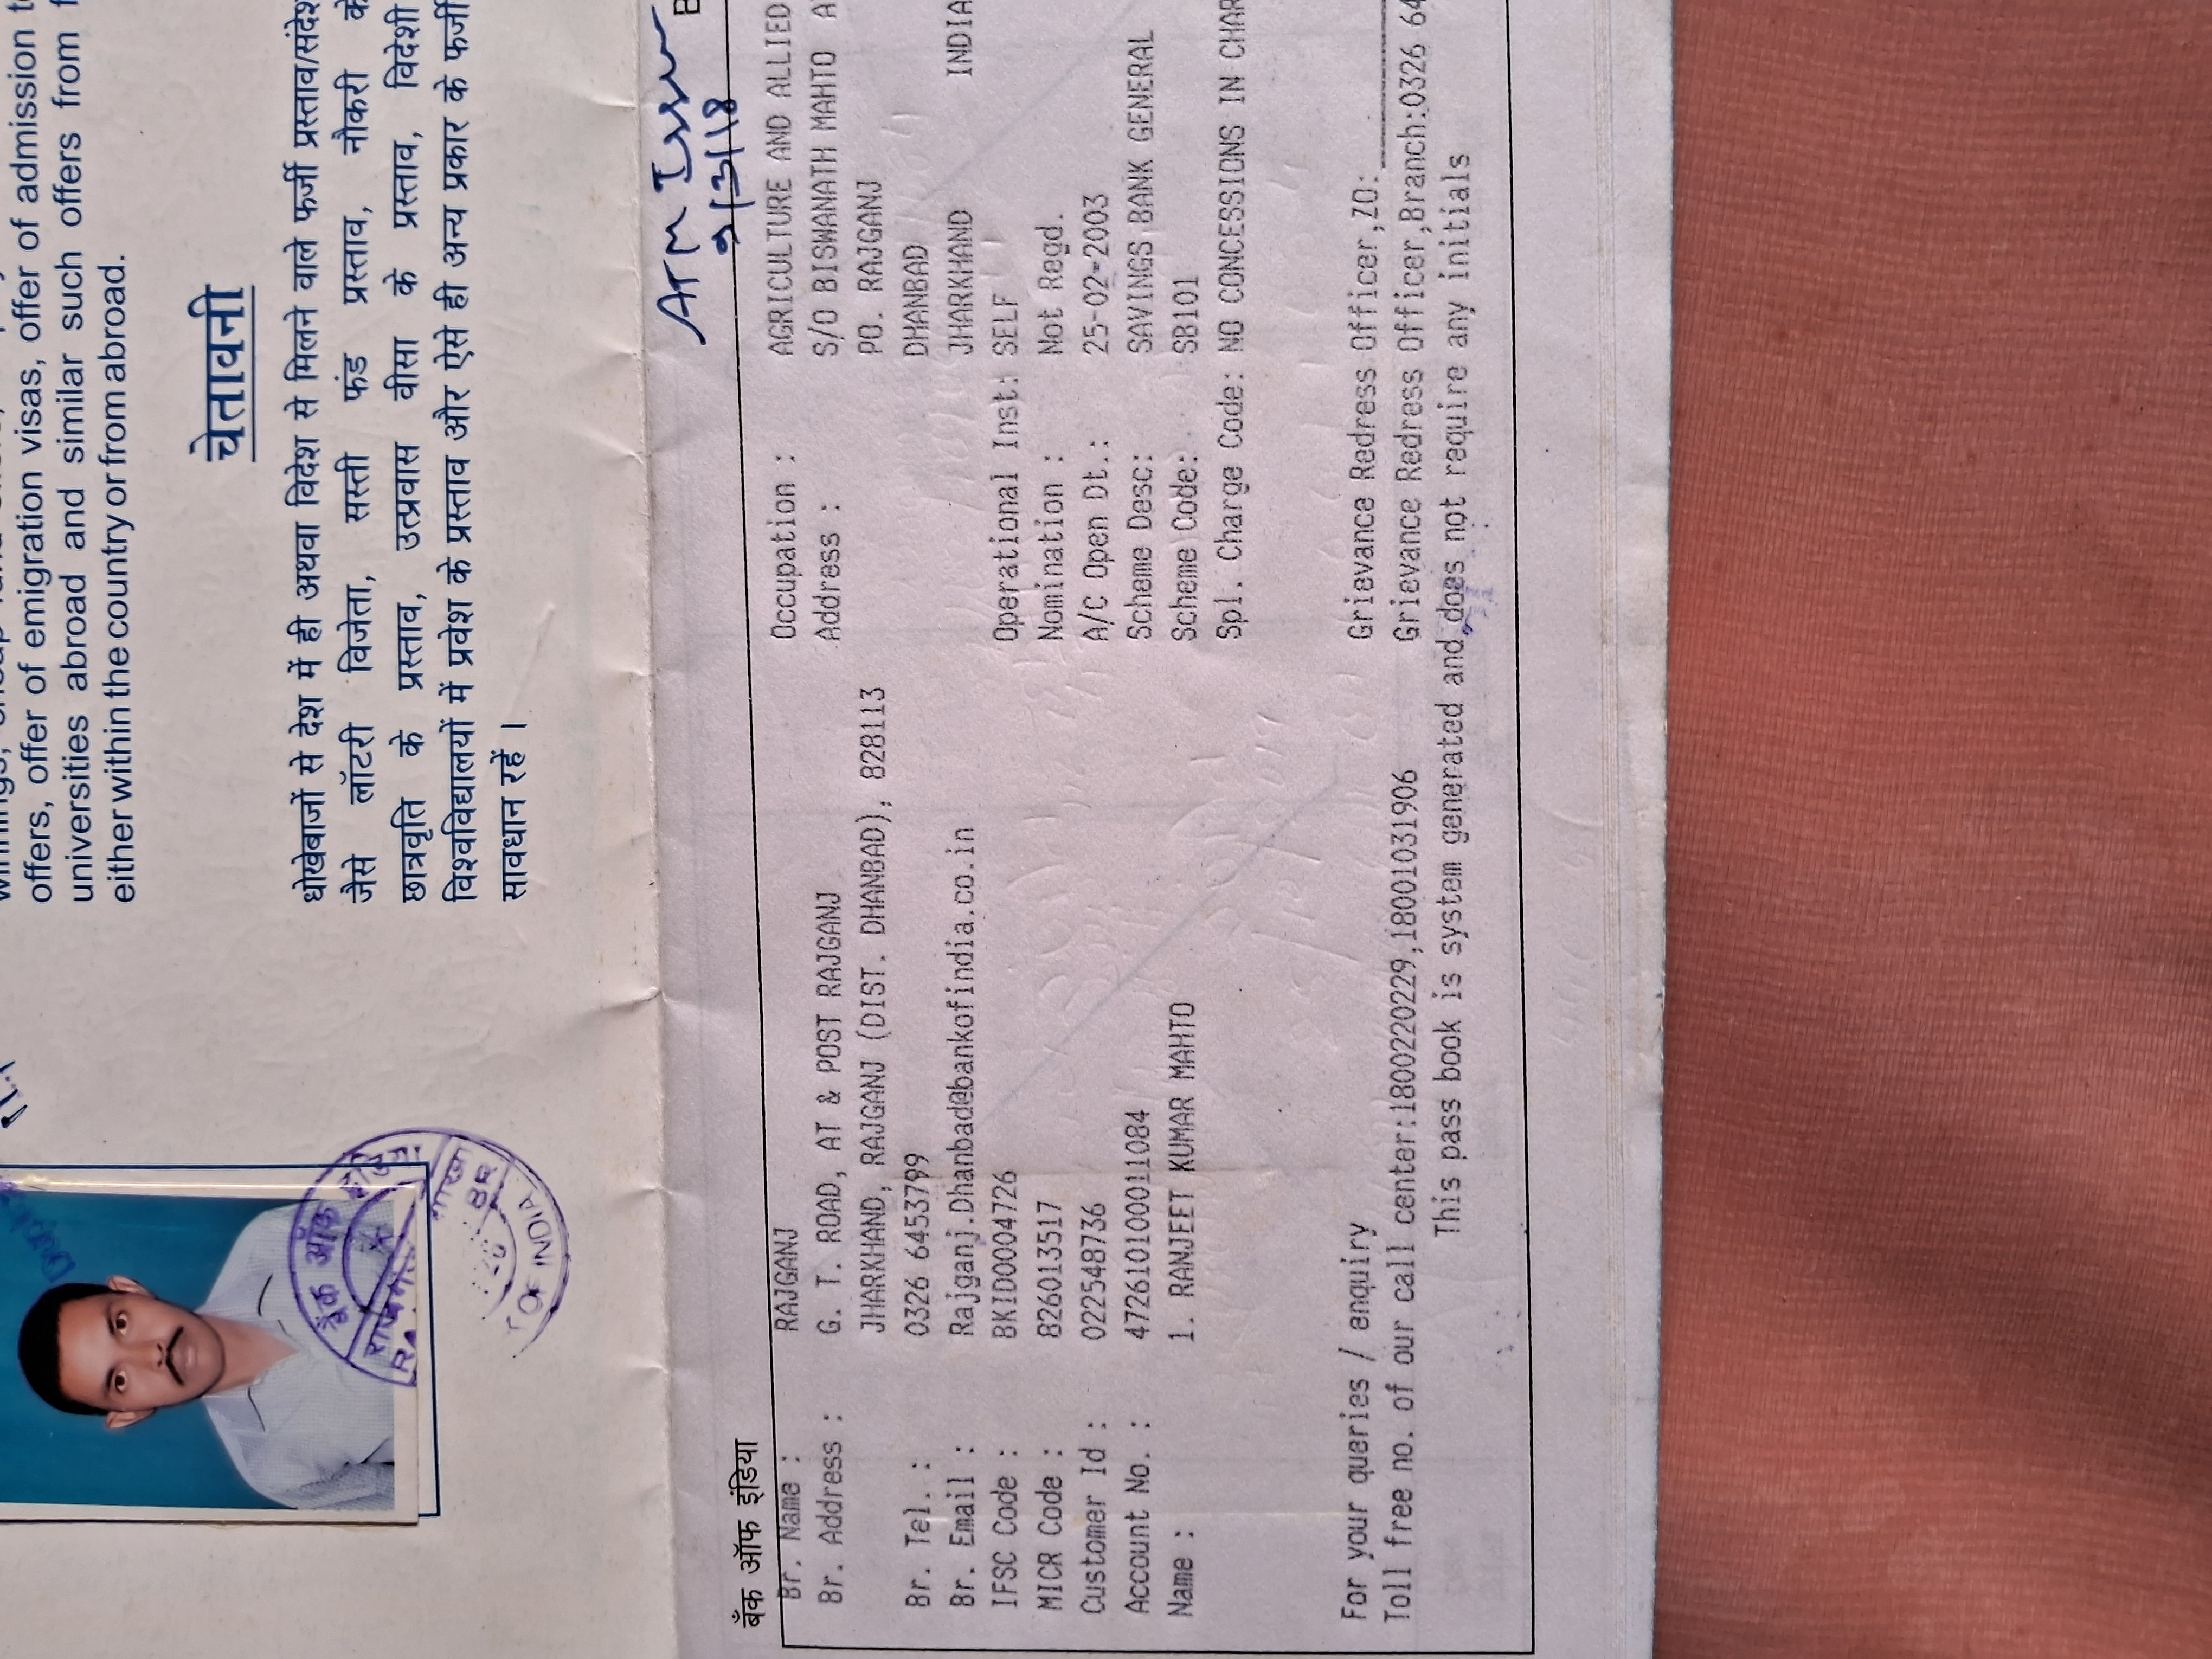 offers, offer of emigration visas, offer of admission
universities abroad and similar such offers from
either within the country or from abroad.
चेतावनी
धोखेबाजों से देश में ही अथवा विदेश से मिलने वाले फर्जी प्रस्ताव/संदेश
जैसे लॉटरी विजेता, सस्ती फंड प्रस्ताव, नौकरी के
छात्रवृति के प्रस्ताव, उत्प्रवास वीसा के प्रस्ताव, विदेशी
विश्वविद्यालयों में प्रवेश के प्रस्ताव और ऐसे ही अन्य प्रकार के फर्जी
सावधान रहें ।
बैंक ऑफ
OF INDIA
ATM
9/3/18
बैंक ऑफ इंडिया
Br. Name : RAJGANJ
Br. Address : G. T. ROAD, AT & POST RAJGANJ
JHARKHAND, RAJGANJ (DIST. DHANBAD), 828113
Br. Tel. : 0326 6453799
Br. Email : Rajganj.Dhanbad@bankofindia.co.in
IFSC Code : BKID0004726
MICR Code : 826013517
Customer Id : 022548736
Account No. : 472610100011084
Name : 1. RANJEET KUMAR MAHTO
Occupation : AGRICULTURE AND ALLIED
Address : S/O BISWANATH MAHTO
PO. RAJGANJ
DHANBAD
JHARKHAND INDIA
Operational Inst: SELF
Nomination : Not Regd.
A/C Open Dt.: 25-02-2003
Scheme Desc: SAVINGS BANK GENERAL
Scheme Code: SB101
Spl. Charge Code: NO CONCESSIONS IN CHAR
For your queries / enquiry Grievance Redress Officer,ZO:
Toll free no. of our call center:1800220229,18001031906 Grievance Redress Officer,Branch:0326 64
This pass book is system generated and does not require any initials